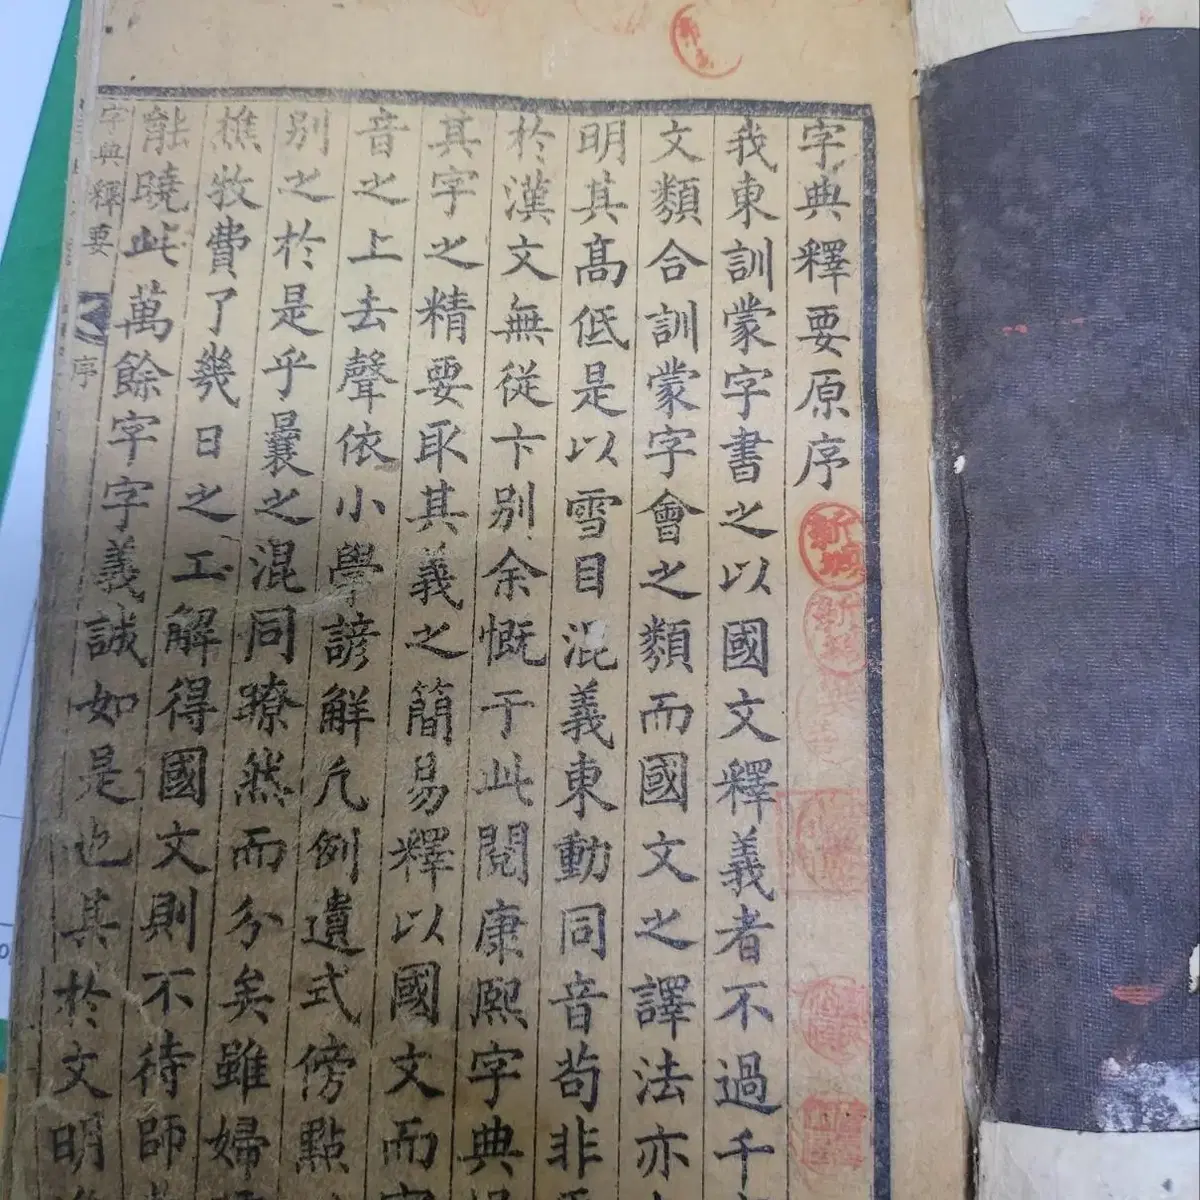 字典釋要原序
我東訓蒙字書之以國文釋義者不過千
文類合訓蒙字會之類而國文之譯法亦
明其高低是以雪目混義東動同音苟非
於漢文無從卞別余慨于此閱康熙字典
其字之精要取其義之簡易釋以國文而
音之上去聲依小學諺解凡例遺式傍點
別之於是乎曩之混同瞭然而分矣雖婦
樵牧費了幾日之工解得國文則不待師
能曉此萬餘字字義誠如是也其於文明
字典釋要
序
新塊